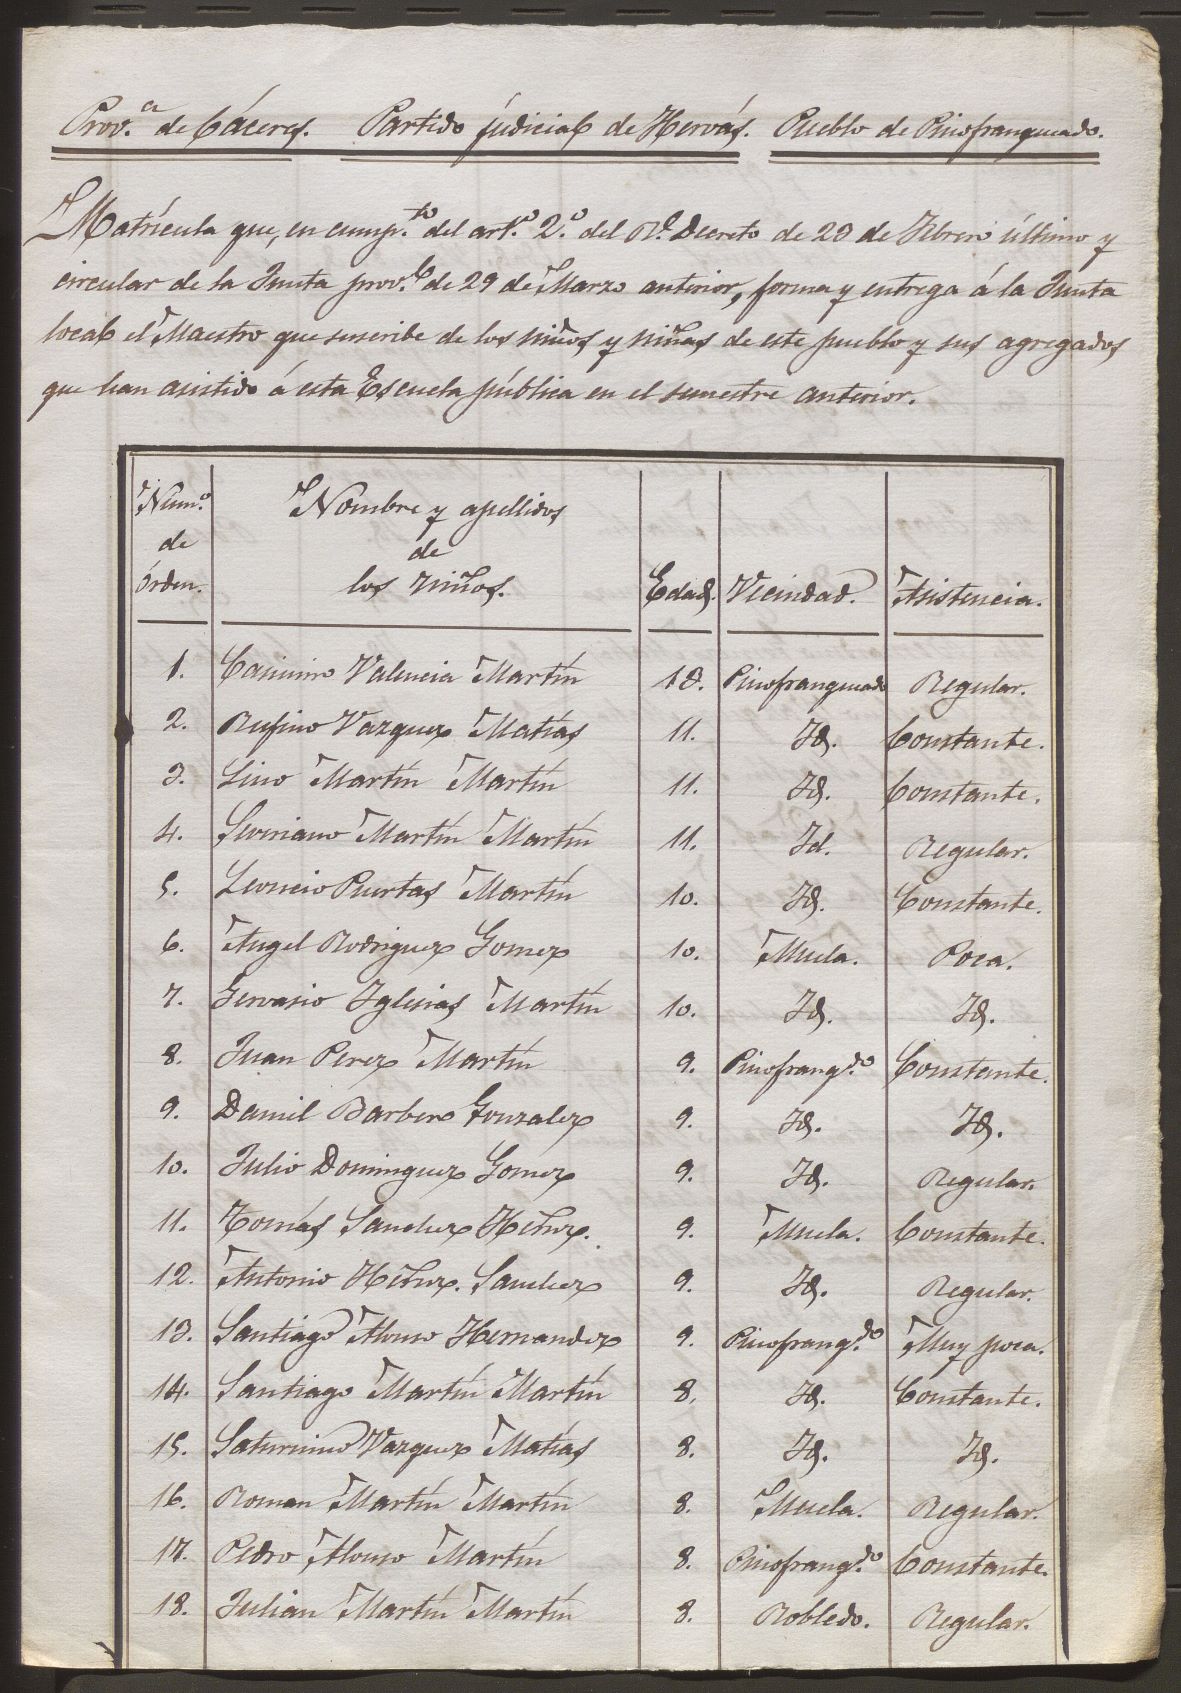 Prov.ª de Cáceres. Partido judicial de Hervás. Pueblo de Pinofranqueado.
Matrícula que, en cump.to del art.º 2.º del Rl. Decreto de 20 de Febrero último y
circular de la Junta prov.l de 29 de Marzo anterior, forma y entrega á la Junta
local el Maestro que suscribe de los niños y niñas de este pueblo y sus agregados
que han asistido á esta Escuela pública en el semestre anterior.
Núm.º de órden. Nombre y apellidos de los niños. Edad. Vecindad. Asistencia.
1. Casimiro Valencia Martín 1 Pinofranqueado Regular.
2. Rufino Vazquez Matías 11. Id. Constante.
3. Lino Martín Martín 11. Id. Constante.
4. Severiano Martín Martín 11. Id. Regular.
5. Leoncio Puertas Martín 10. Id. Constante.
6. Angel Rodriguez Gomez 10. Muela. Poca.
7. Gervasio Iglesias Martín 10. Id. Id.
8. Juan Perez Martín 9. Pinofranq.do Constante.
9. Daniel Barbero Gonzalez 9. Id. Id.
10. Julio Dominguez Gomez 9. Id. Regular.
11. Tomás Sanchez Hernz. 9. Muela. Constante.
12. Antonio Hernz. Sanchez 9. Id. Regular.
13. Santiago Alonso Hernandez 9. Pinofranq.do Muy poca.
14. Santiago Martín Martín 8. Id. Constante.
15. Saturnino Vazquez Matías 8. Id. Id.
16. Roman Martín Martín 8. Muela. Regular.
17. Pedro Alonso Martín 8. Pinofranq.do Constante.
18. Julian Martín Martín 8. Robledo. Regular.